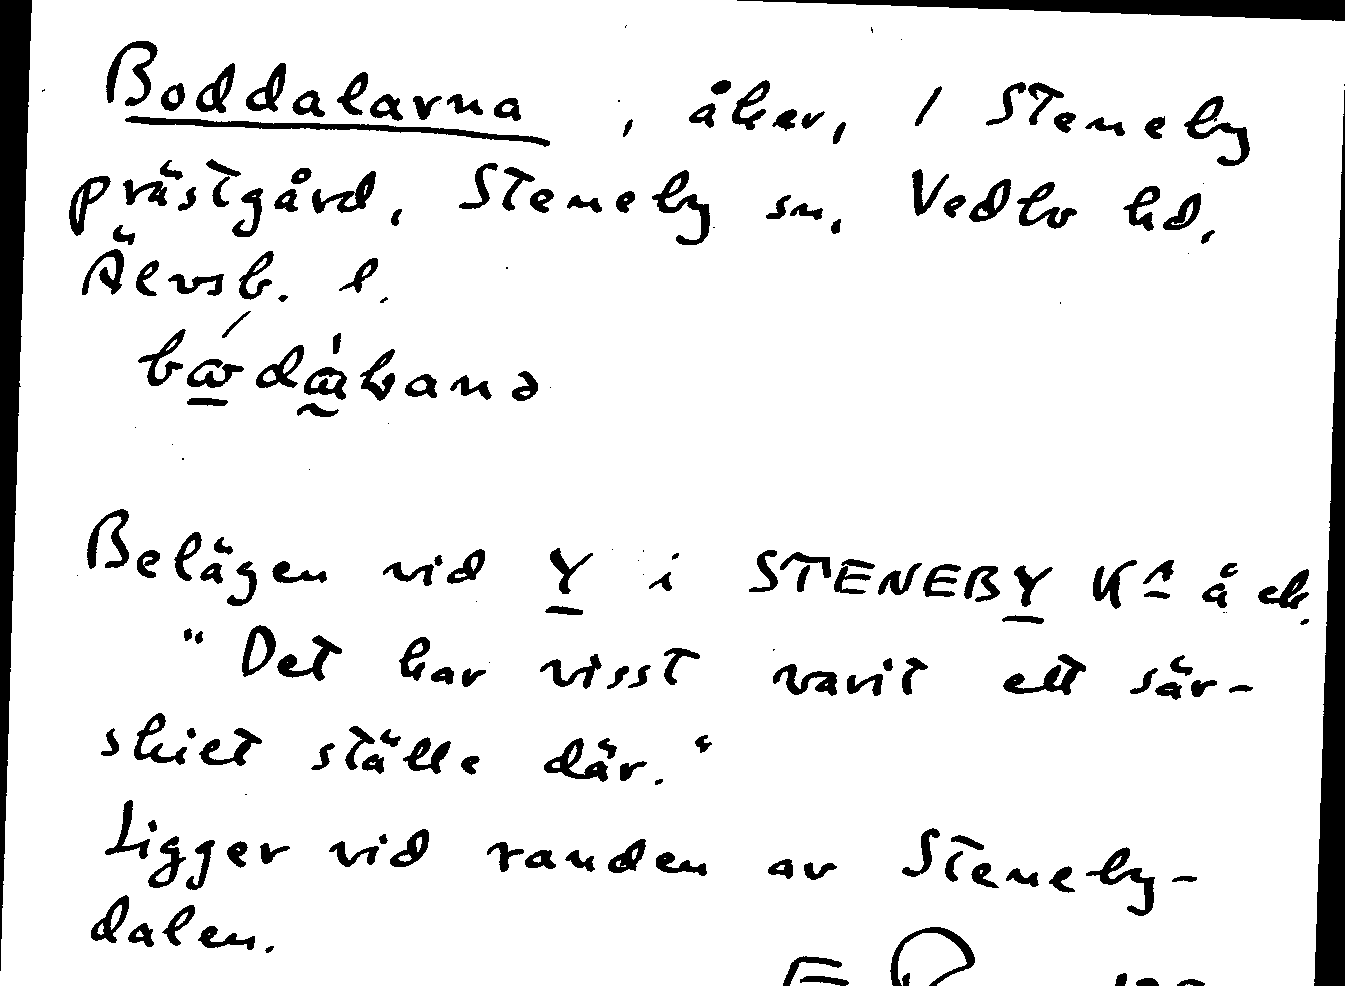 Boddalarna, åker, / Steneby
prästgård, Steneby sn, Vedbo hd,
Älvsb. l.
Belägen vid Y i STENEBY Ka å ek.
"Det har visst varit ett sär-
skilt ställe där."
Ligger vid randen av Steneby-
dalen.